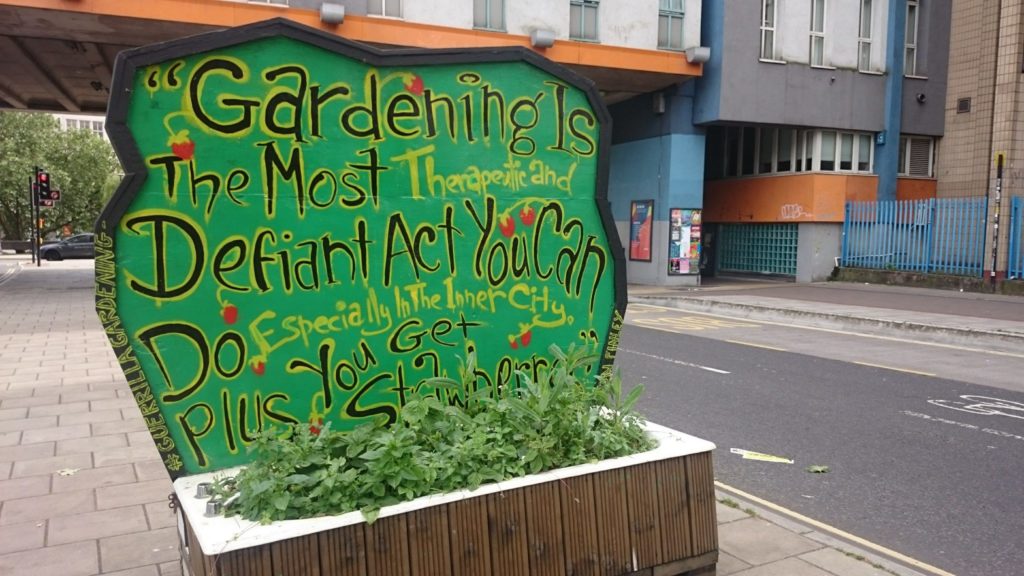 “Gardening Is
The Most Therapeutic and
Defiant Act You Can
Do Especially In The Inner City.
Plus You Get
Strawberries”
#GUERRILLA GARDENING-
FINLEY